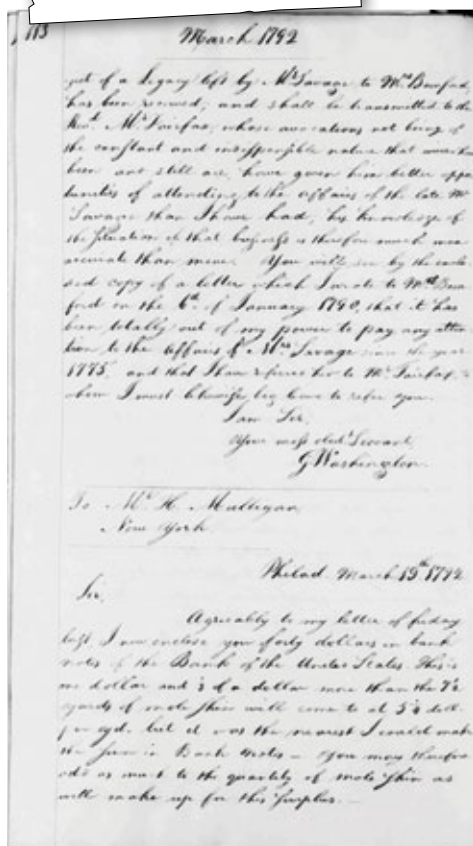 113
March 1792
of a Legacy left by Mr. Savage to Mrs. Bomford
has been received, and shall be transmitted to the
Revd. Mr. Fairfax, whose avocations not being of
the constant and indispensible nature that mine have
been and still are, have given him better oppor
tunities of attending to the affairs of the late Mr.
Savage than I have had, his knowledge of
the situation of that business is therefore much more
accurate than mine. You will see by the enclo
sed copy of a letter which I wrote to Mrs. Bom
ford on the 6th. of January 1790, that it has
been totally out of my power to pay any atten
tion to the Affairs of Mrs. Savage since the year
1775, and that I have referred her to Mr. Fairfax, to
whom I must likewise beg leave to refer you.
I am Sir,
Your most obedt. Servant,
G. Washington.
To Mr. H. Mulligan
New York.
Philad. March 19th 1792
Sir,
Agreeably to my letter of friday
last, I now enclose you forty dollars in bank
notes of the Bank of the United States. This is
one dollar and of a dollar more than the
yards of mole skin will come to at doll.
per yd. but it was the nearest I could make
the sum in Bank notes — You may therefore
add as much to the quantity of mole skin as
will make up for this surplus. —